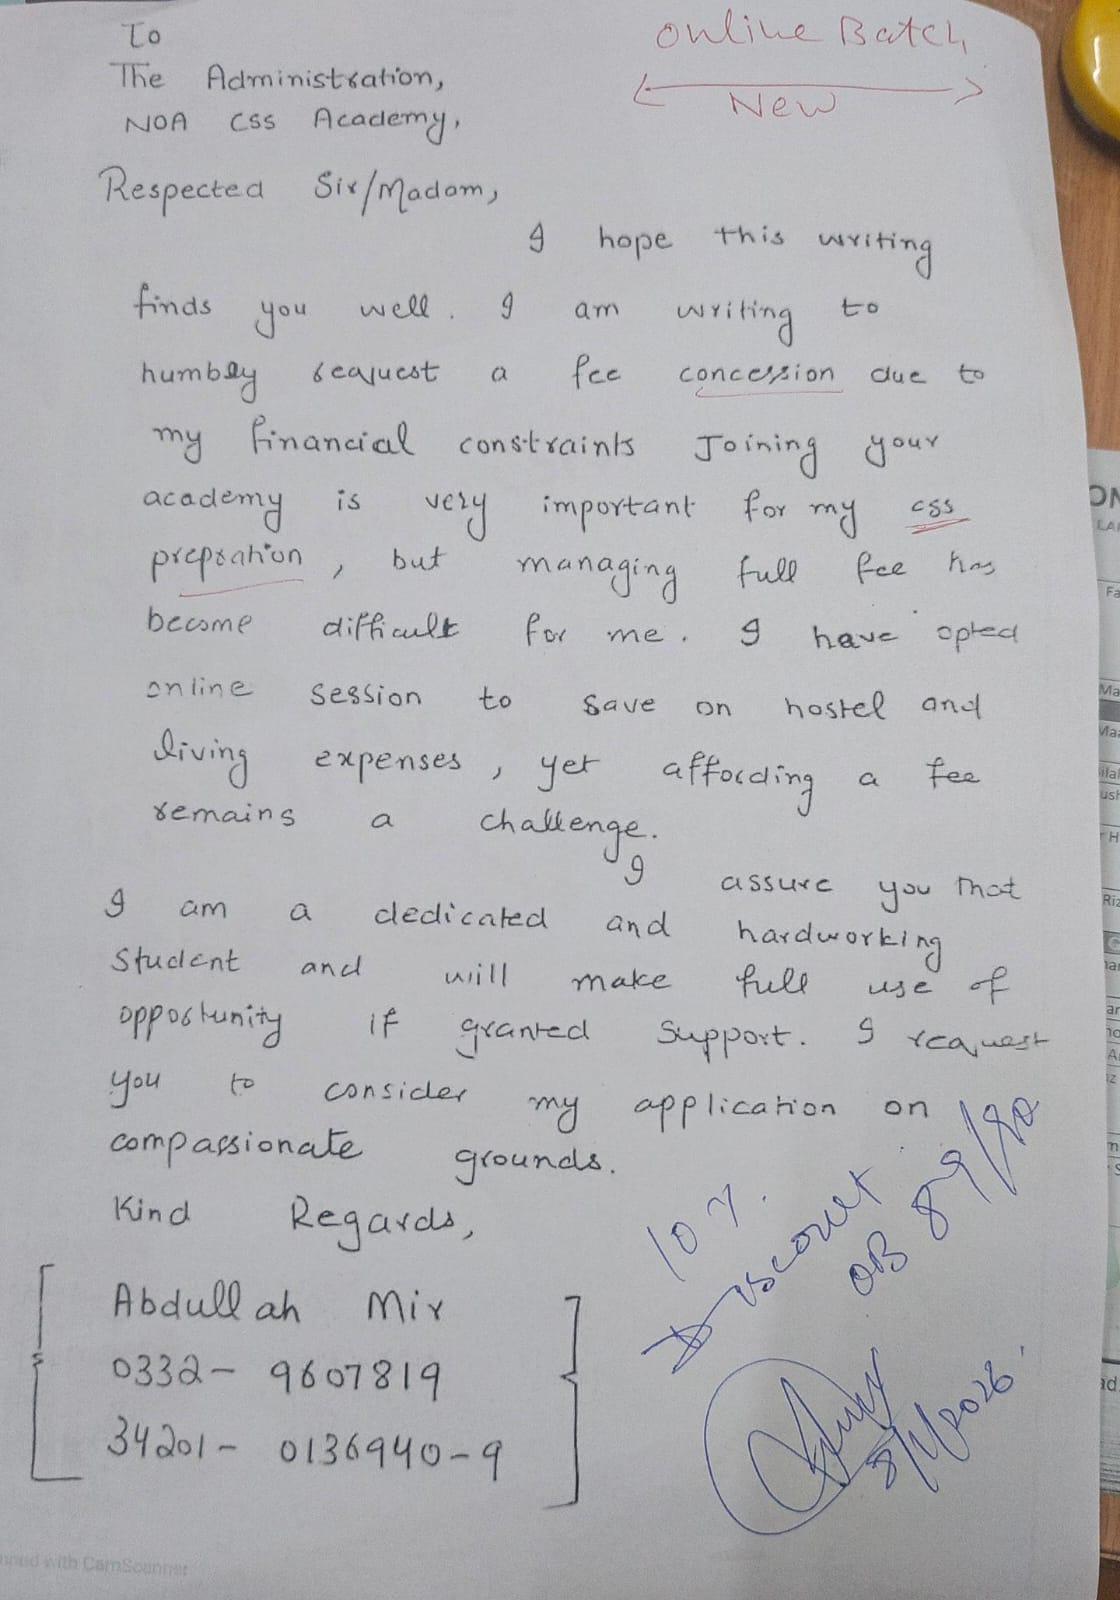 To
Online Batch
The Administration,
New
NOA CSS Academy,
Respected Sir/Madam,
I hope this writing
finds you well. I am writing to
humbly request a fee concession due to
my financial constraints Joining your
academy is very important for my CSS
prepration, but managing full fee has
become difficult for me. I have opted
online session to save on hostel and
living expenses, yet affording a fee
remains a challenge.
I assure you that
I am a dedicated and hardworking
student and will make full use of
opportunity if granted support. I request
you to consider my application on
compassionate grounds.
Kind Regards,
Abdullah Mir
0332-9607819
34201-0136940-9
10%
Discount
OB 89/90
8/1/2026.
Scanned with CamScanner